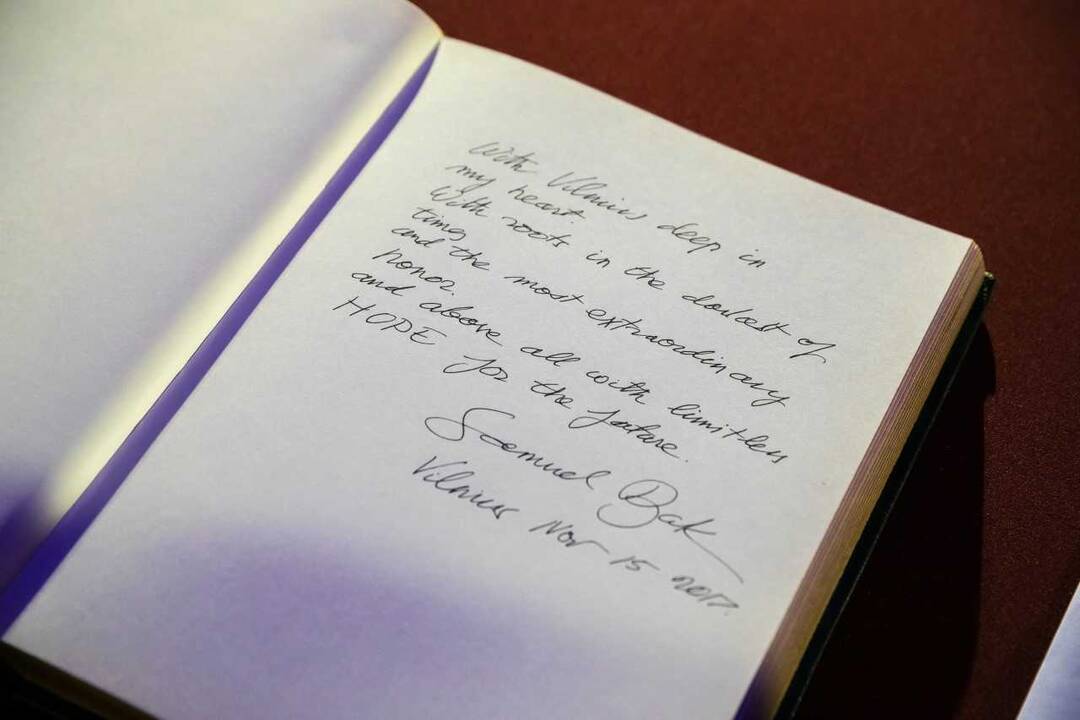 With Vilnius deep in
my heart.
With roots in the darkest of
times,
and the most extraordinary
honor.
and above all with limitless
HOPE for the future.
Samuel Bak
Vilnius Nov 15 2017.